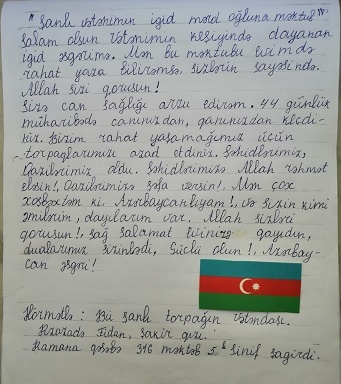 "Şanlı vətənimin igid mərd oğluna məktub"
Salam olsun Vətənimin keşiyində dayanan
igid əsgərimə. Mən bu məktubu evimdə
rahat yaza bilirəmsə, sizlərin sayəsində.
Allah sizi qorusun!
Sizə can sağlığı arzu edirəm. 44 günlük
müharibədə canınızdan, qanınızdan keçdi-
niz. Bizim rahat yaşamağımız üçün
torpaqlarımızı azad etdiniz. Şəhidlərimiz,
Qazilərimiz oldu. Şəhidlərimizə Allah rəhmət
eləsin!, Qazilərimizə şəfa versin!, Mən çox
xoşbəxtəm ki, Azərbaycanlıyam!, və sizin kimi
əmilərim, dayılarım var. Allah sizləri
qorusun!, sağ salamat evinizə qayıdın,
dualarımız sizinlədi, Güclü olun!, Azərbay-
can əsgəri!
Hörmətlə: Bu şanlı torpağın vətəndaşı.
Rzazadə Fidan, Şakir qızı.
Ramana qəsəbə 316 məktəb 5 sinif şagirdi.